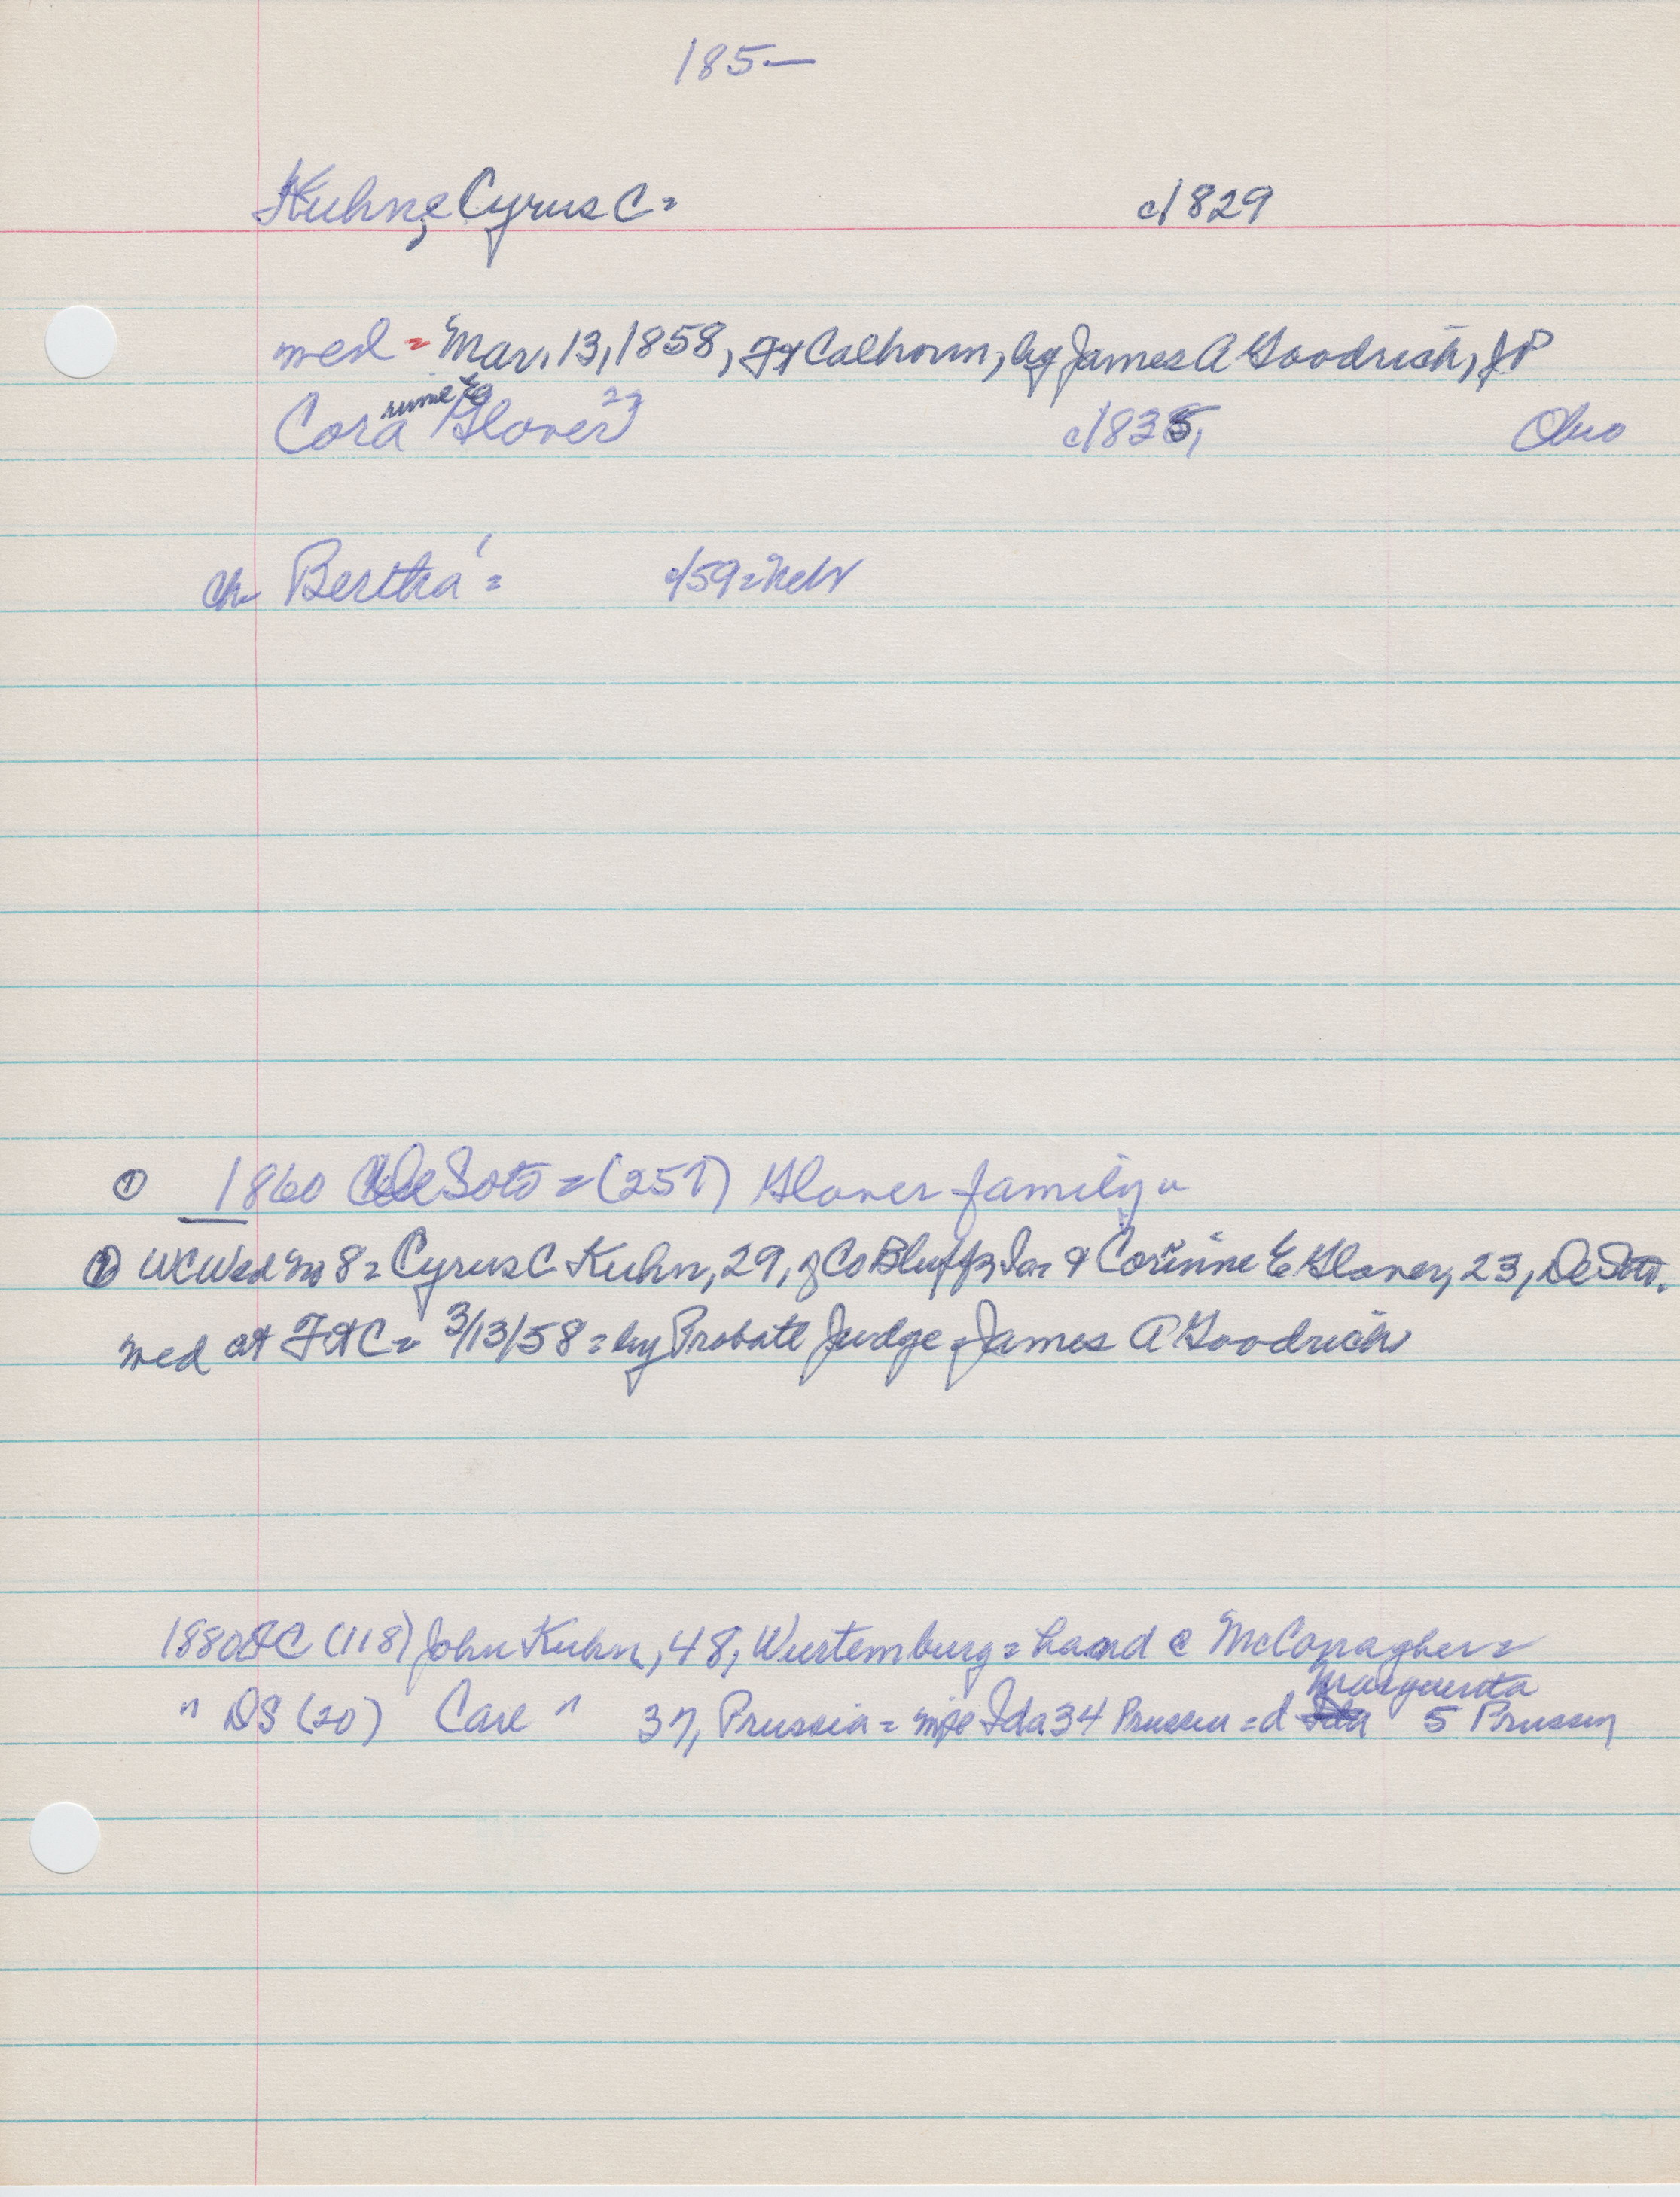 185-
Kuhne, Cyrus C = c/829
wed = Mar. 13, 1858, Ft Calhoun, by James A Goodrich, JP
rinne E
Cora Glover 23 c/835, Ohio
ch Bertha' = c/59 = Neb
① 1860 DeSoto = (257) Glover family
② WCWed No 8 = Cyrus C Kuhn, 29, of Co Bluffs, Ia = & Corinne E Glover, 23, DeSoto.
wed at Ft C = 3/13/58 = by Probate Judge James A Goodrich
1880 (118) John Kuhn, 48, Wurtemburg = hand @ McConagher =
Marguerita
" DS (20) Carl " 37, Prussia = wife Ida 34 Prussia = d 5 Prussia